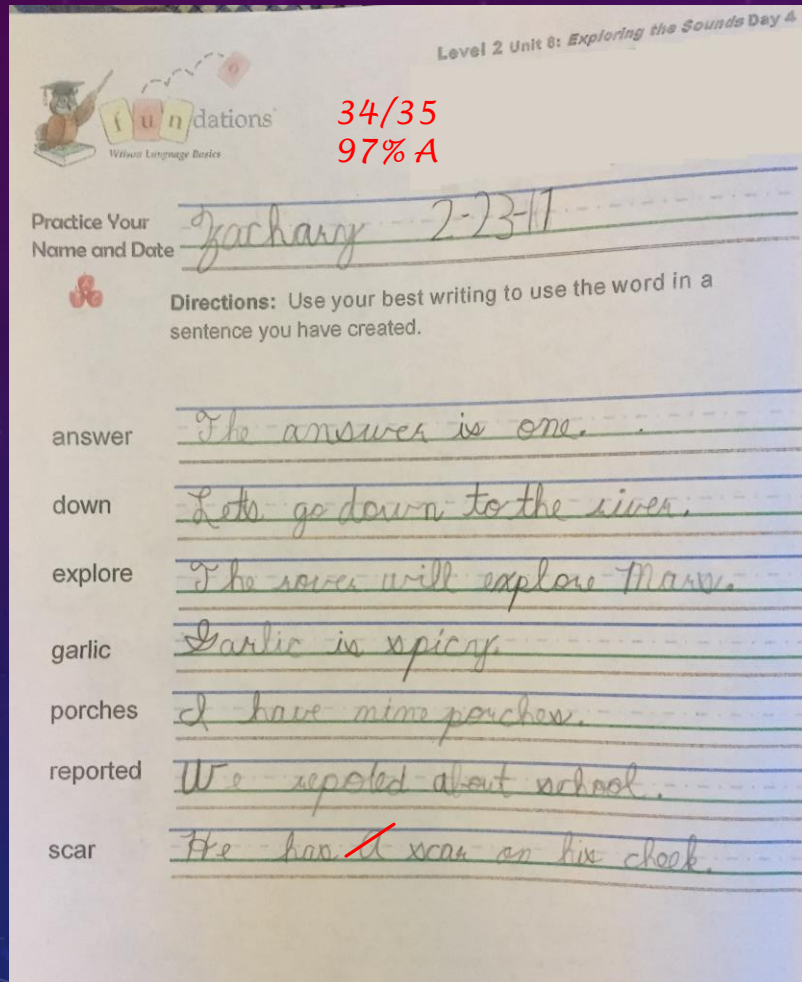 Level 2 Unit 8: Exploring the Sounds Day 4
fundations
Wilson Language Basics
34/35
97% A
Practice Your
Name and Date
Zachary 2-23-17
Directions: Use your best writing to use the word in a
sentence you have created.
answer The answer is one.
down Lets go down to the river.
explore The rover will explore Mars.
garlic Garlic is spicy.
porches I have nine porches.
reported We repoted about school.
scar He has A scar on his cheek.